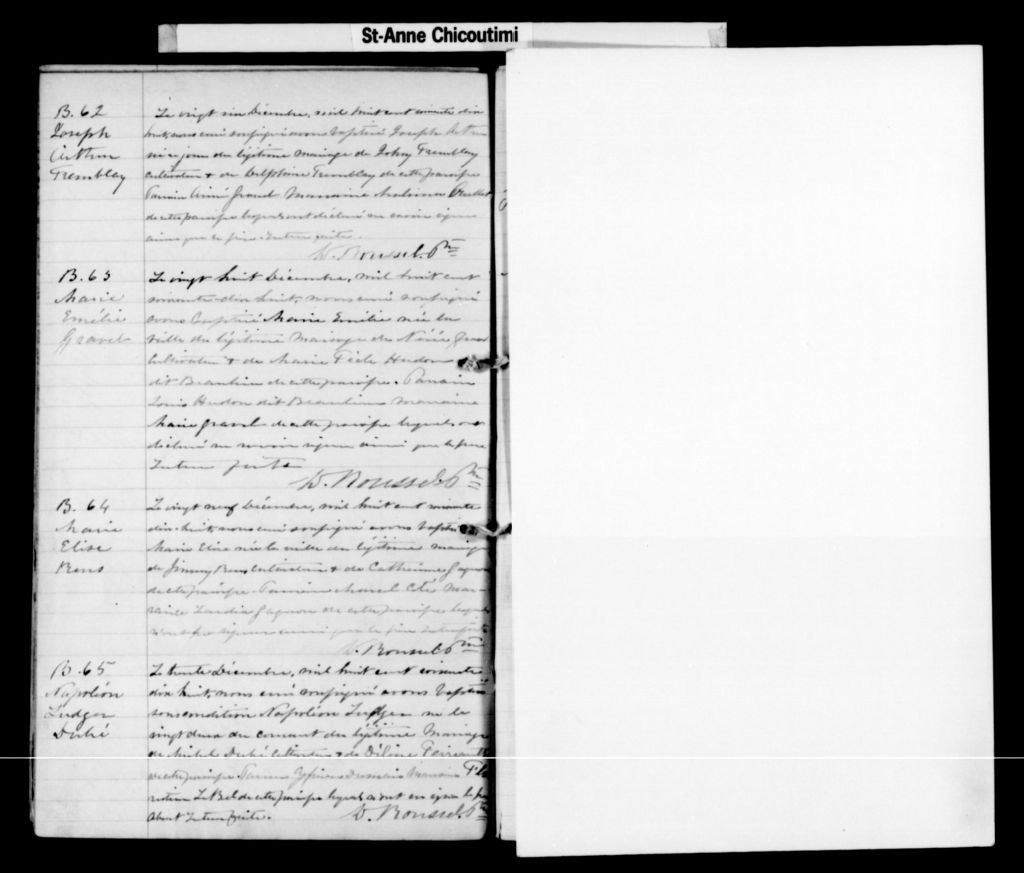 St-Anne Chicoutimi
B. 62
Joseph
Arthur
Tremblay
Le vingt six Décembre, mil huit cent soixante dix
huit, nous curé soussigné avons baptisé Joseph Arthur
né ce jour du légitime mariage de Johny Tremblay
cultivateur & de Delphine Tremblay de cette paroisse
Parrain Aimé Gravel Marraine Ouellet
de cette paroisse lesquels ont déclaré ne savoir signer
ainsi que le père. Lecture faite.
D. Roussel. Ptre
B. 63
Marie
Emélie
Gravel
Le vingt huit Décembre, mil huit cent
soixante-dix huit, nous curé soussigné
avons baptisé Marie Emélie née la
veille du légitime Mariage de Nérée
Cultivateur & de Marie Hudon
dit Beaulieu de cette paroisse. Parrain
Louis Hudon dit Beaulieu marraine
Marie Gravel de cette paroisse lesquels ont
déclaré ne savoir signer ainsi que le père
Lecture faite
D. Roussel. Ptre
B. 64
Marie
Elise
Le vingt neuf Décembre, mil huit cent soixante
dix-huit, nous curé soussigné avons baptisé
Marie Elise née la veille du légitime mariage
de Jimmy cultivateur & de Catherine Gagnon
de cette paroisse. Parrain Côté Mar-
raine Gagnon de cette paroisse lesquels
signer ainsi que le père Lecture faite
D. Roussel Ptre
B. 65
Napoléon
Ludger
Dubé
Le trente Décembre, mil huit cent soixante
dix huit, nous curé soussigné avons baptisé
sous condition Napoléon Ludger né le
vingt deux du courant du légitime Mariage
de Michel Dubé Cultivateur & de
de cette paroisse. Parrain Dumais Marraine
LeBel de cette paroisse lesquels
absent Lecture faite.
D. Roussel. Ptre